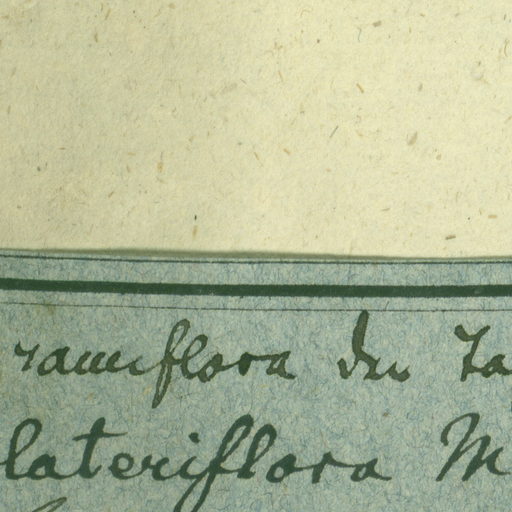 ramiflora du Ta
lateriflora M